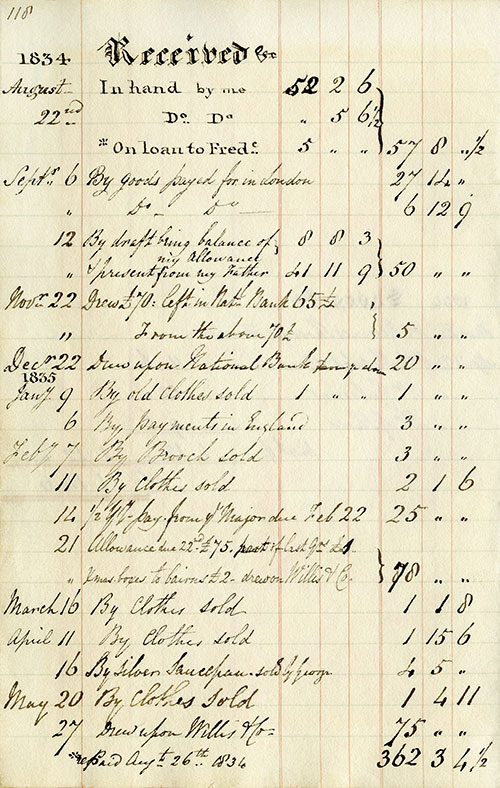 118
1834 Received &c
August In hand by me 52 2 6
22nd Do. Do " 5 6½
*On loan to Fredc. 5 " " 57 8 "½
Septr. 6 By goods payed for in London 27 14 "
" Do - Do - 6 12 9
12 By draft being balance of my Allowance 8 8 3
" & present from my Father 41 11 9 50 " "
Novr 22 Drew £70: left in Natl. Bank 65£
" From the above 70£ 5 " "
Decr. 22 Drew upon National Bank 20 " "
1835
Jany. 9 By old clothes sold 1 " " 1 " "
6 By payments in England 3 " "
Feby 7 By Brooch sold 3 " "
11 By Clothes sold 2 1 6
14 ½ yr. pay from ye Major due Feb 22 25 " "
21 Allowance due 22d. £75. part of last qr £1
" Xmas boxes to bairns £2 - drew on Willis & Co. 78 " "
March 16 By Clothes sold 1 1 8
April 11 By Clothes sold 1 15 6
16 By Silver Saucepan sold by George 4 5 "
May 20 By Clothes sold 1 4 11
27 Drew upon Willis & Co- 75 " "
362 3 4½
*repaid Augt. 26th. 1834